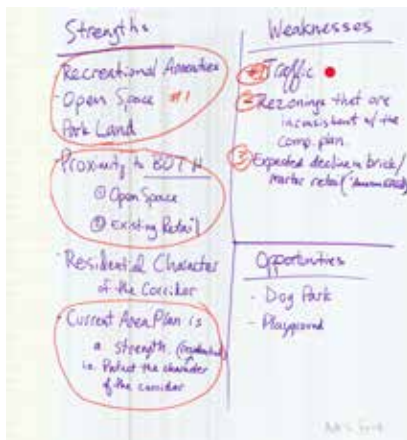 Strengths
Recreational Amenities
- Open Space #1
Park Land
- Proximity to BOTH
① Open Space
② Existing Retail
- Residential Character
of the Corridor
- Current Area Plan is
a strength.
i.e. Protect the character
of the corridor
Weaknesses
Traffic
② Rezonings that are
inconsistent w/ the
comp. plan.
③ Expected decline in brick/
mortar retail
Opportunities
- Dog Park
- Playground